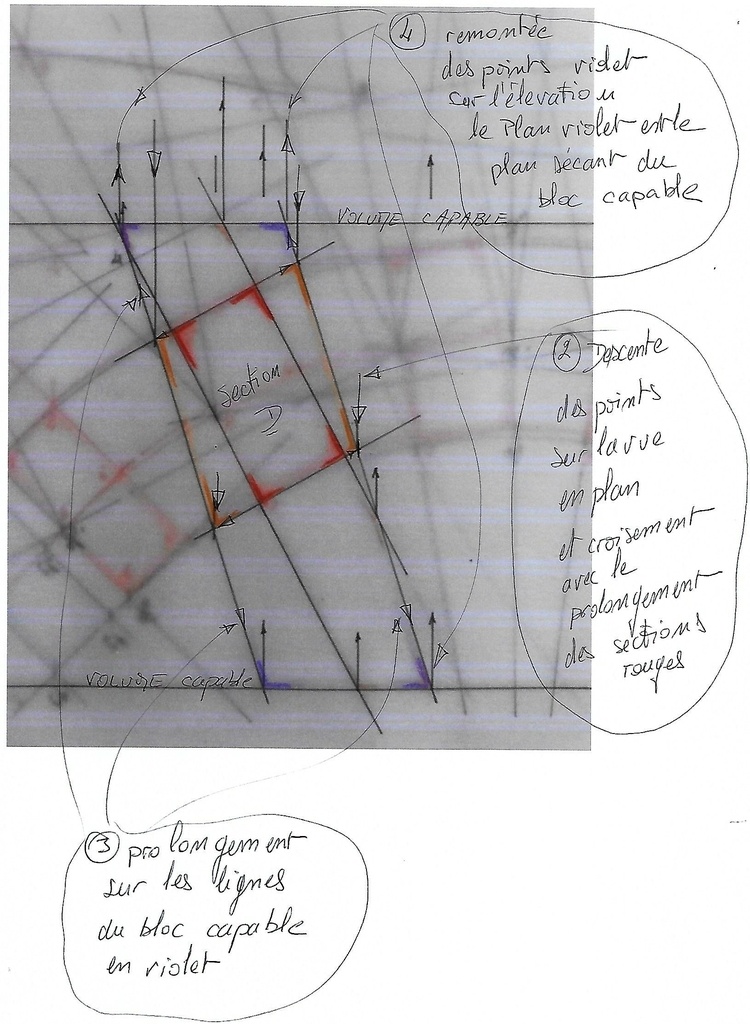 ④ remontée
des points violet
sur l'élevation
le Plan violet est le
plan sécant du
bloc capable
VOLUME CAPABLE
② Descente
des points
sur la vue
en plan
et croisement
avec le
prolongement
des sections
rouges
section
D
VOLUME capable
③ prolongement
sur les lignes
du bloc capable
en violet